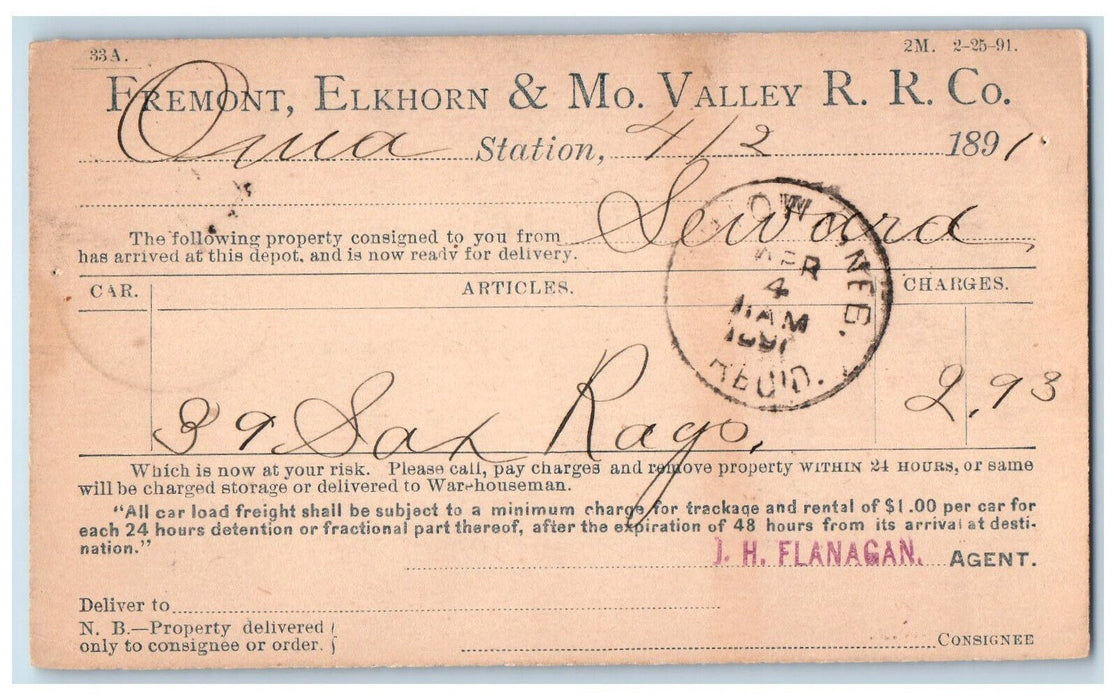 33A. 2M. 2-25-91.
FREMONT, ELKHORN & MO. VALLEY R. R. CO.
Oma Station, 4/2 1891
The following property consigned to you from Seward,
has arrived at this depot, and is now ready for delivery.
CAR. ARTICLES. CHARGES.
39 Sax Rags, 2.93
NEB.
APR
4
11AM
1891
REC'D.
Which is now at your risk. Please call, pay charges and remove property WITHIN 24 HOURS, or same
will be charged storage or delivered to Warehouseman.
"All car load freight shall be subject to a minimum charge for trackage and rental of $1.00 per car for
each 24 hours detention or fractional part thereof, after the expiration of 48 hours from its arrival at desti-
nation."
J. H. FLANAGAN. AGENT.
Deliver to
N. B.—Property delivered
only to consignee or order. CONSIGNEE